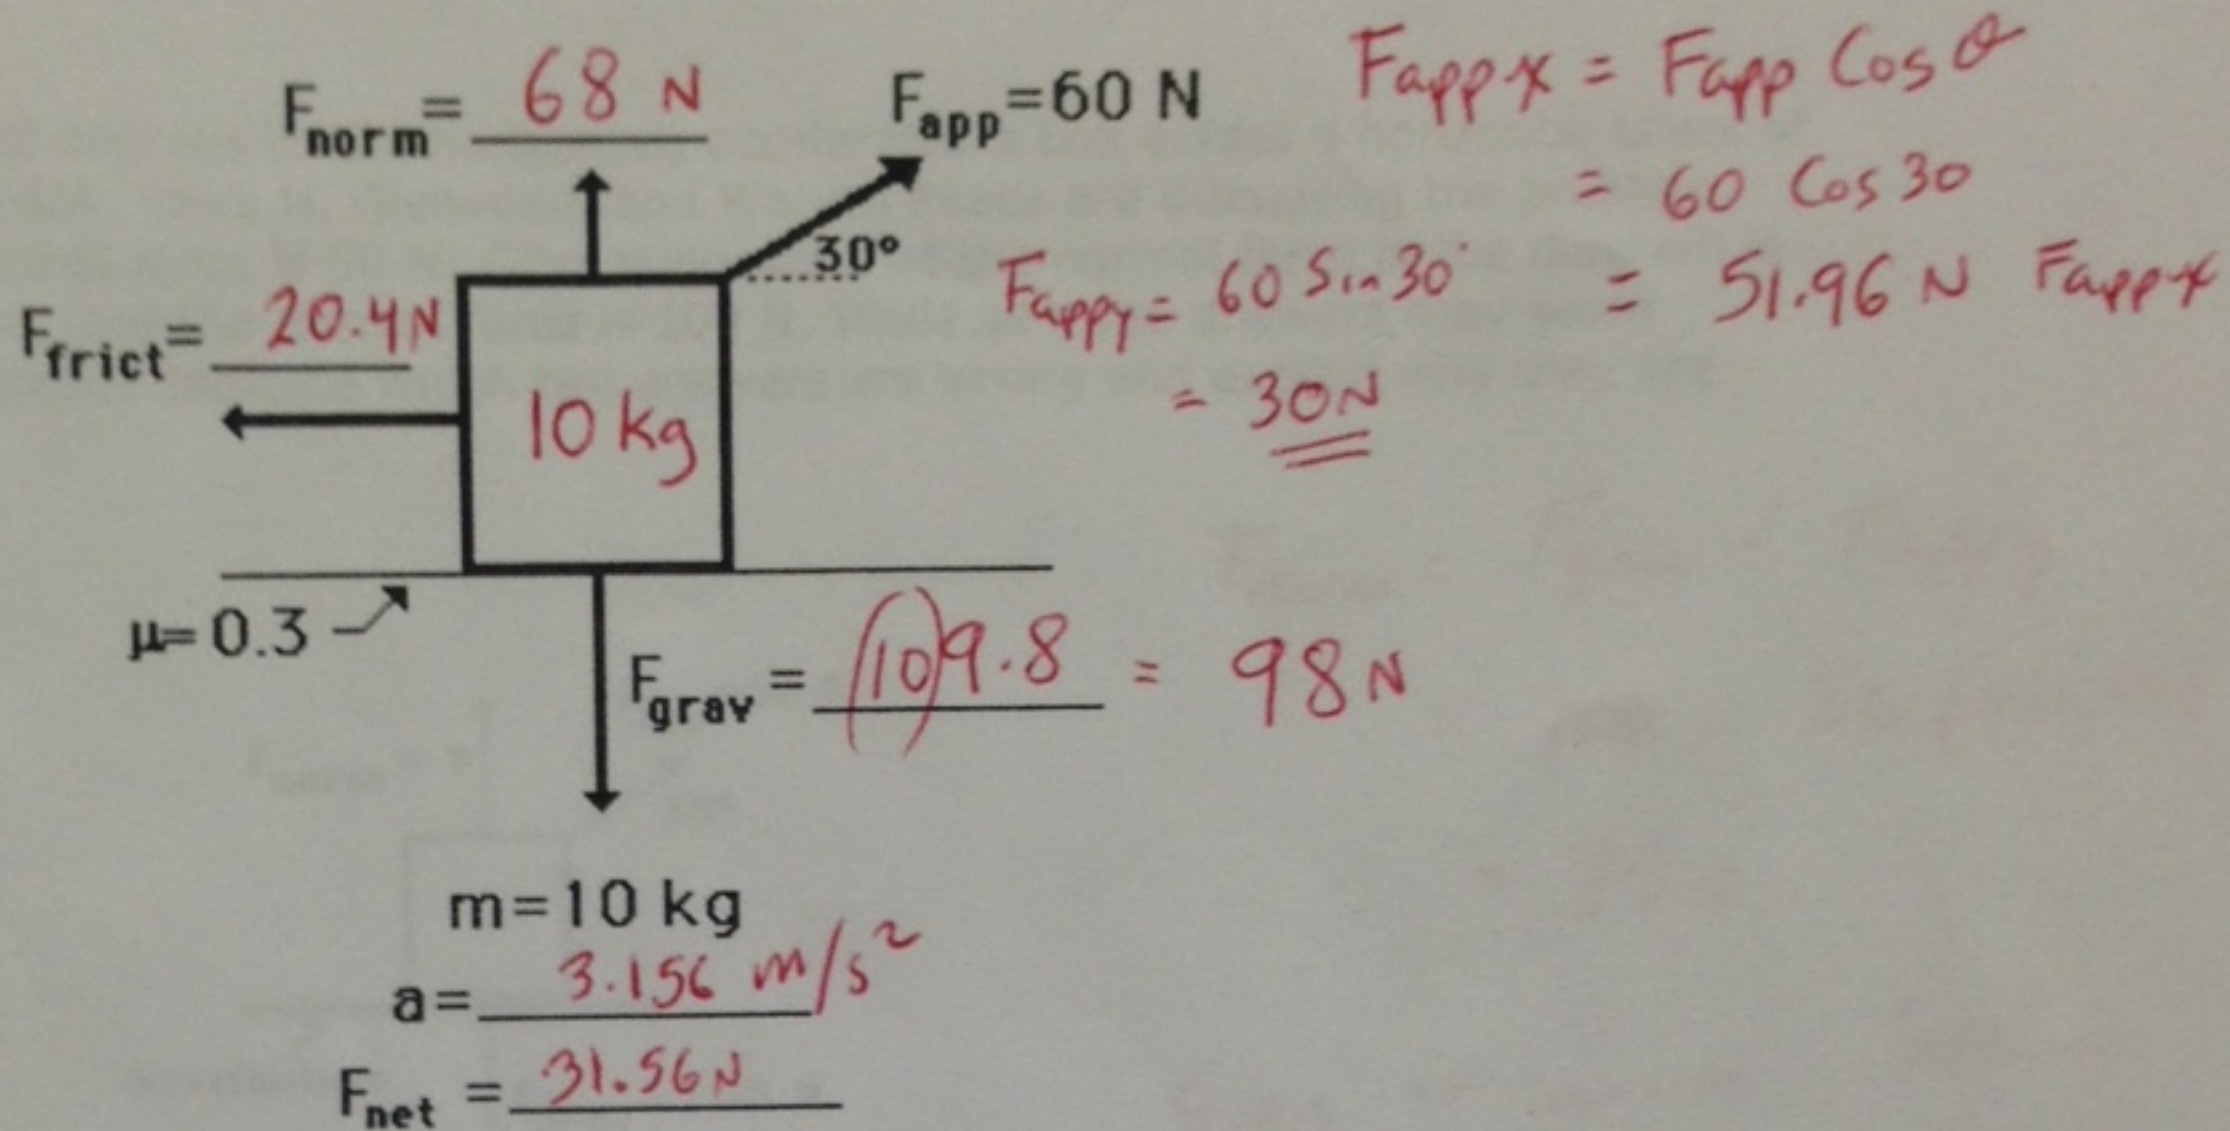 F_norm = 68 N
F_app = 60 N
F_app x = F_app Cos θ
= 60 Cos 30
= 51.96 N F_app x
30°
F_app y = 60 Sin 30°
= 30 N
F_frict = 20.4 N
10 kg
μ= 0.3
F_grav = (10)9.8 = 98 N
m=10 kg
a= 3.156 m/s²
F_net = 31.56 N